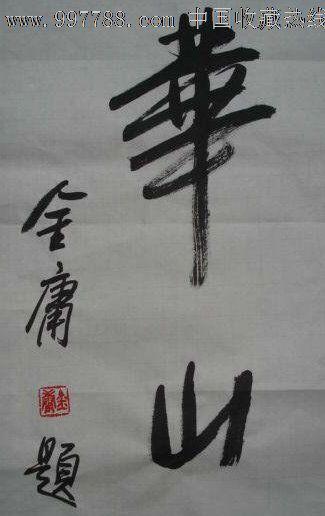 www.997788.com 中国收藏热线
華山
金庸題